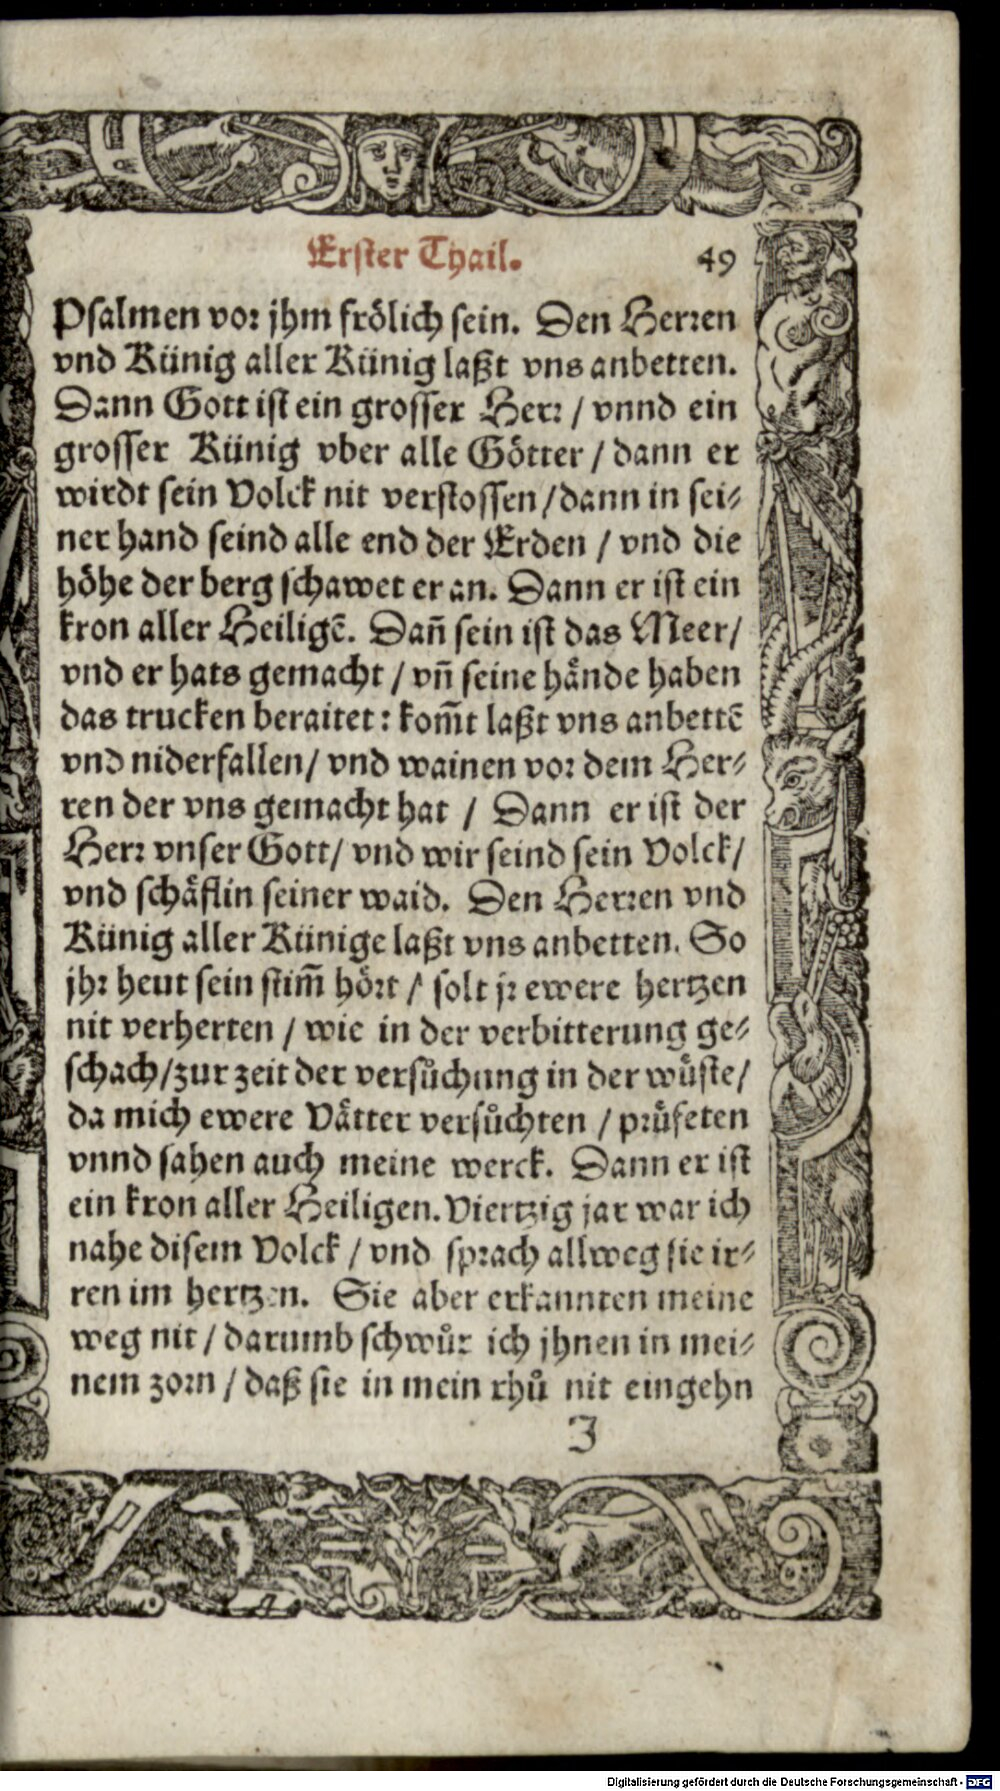 Erster Thail. 49
Psalmen vor jhm frölich sein. Den Herren
vnd Künig aller Künig laßt vns anbetten.
Dann Gott ist ein grosser Herr / vnnd ein
grosser Künig vber alle Götter / dann er
wirdt sein Volck nit verstossen / dann in sei⸗
ner hand seind alle end der Erden / vnd die
höhe der berg schawet er an. Dann er ist ein
kron aller Heiligē. Dañ sein ist das Meer/
vnd er hats gemacht / vñ seine hände haben
das trucken beraitet: kom̃t laßt vns anbettē
vnd niderfallen/ vnd wainen vor dem Her⸗
ren der vns gemacht hat / Dann er ist der
Herr vnser Gott/ vnd wir seind sein Volck/
vnd schäflin seiner waid. Den Herren vnd
Künig aller Künige laßt vns anbetten. So
jhr heut sein stim̃ hört / solt jr ewere hertzen
nit verherten / wie in der verbitterung ge⸗
schach/zur zeit der versůchung in der wüste/
da mich ewere Vätter versůchten / prüfeten
vnnd sahen auch meine werck. Dann er ist
ein kron aller Heiligen. Viertzig jar war ich
nahe disem Volck / vnd sprach allweg sie ir⸗
ren im hertzen. Sie aber erkannten meine
weg nit / darumb schwůr ich jhnen in mei⸗
nem zorn / daß sie in mein rhů nit eingehn
J
Digitalisierung gefördert durch die Deutsche Forschungsgemeinschaft - DFG